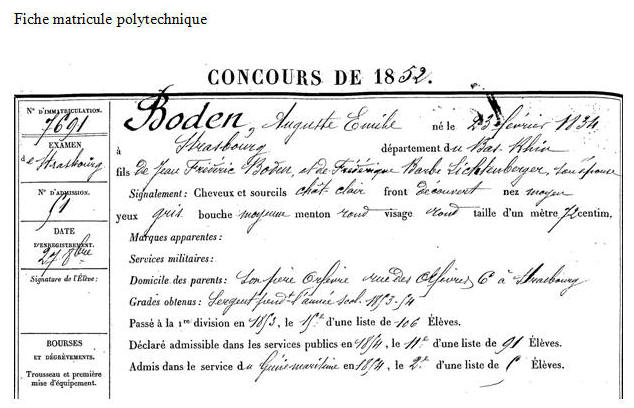 Fiche matricule polytechnique
CONCOURS DE 1852.
N° D'IMMATRICULATION.
7691
EXAMEN
de Strasbourg
N° D'ADMISSION.
51
DATE
D'ENREGISTREMENT.
27 8bre
Signature de l'Élève:
BOURSES
ET DÉGRÈVEMENTS.
Trousseau et première
mise d'équipement.
Boden, Auguste Emile né le 23 février 1834
à Strasbourg département du Bas-Rhin
fils de Jean Frédéric Boden, et de Frédérique Barbe Lichtenberger, son épouse
Signalement: Cheveux et sourcils chât. clair front découvert nez moyen
yeux gris bouche moyenne menton rond visage rond taille d'un mètre 72 centim.
Marques apparentes:
Services militaires:
Domicile des parents: Son père Orfèvre rue des Orfèvres, 6 à Strasbourg
Grades obtenus: Sergent pend^t l'année scol. 1853-54
Passé à la 1re division en 1853, le 15e d'une liste de 106 Élèves.
Déclaré admissible dans les services publics en 1854, le 11e d'une liste de 91 Élèves.
Admis dans le service du Génie maritime en 1854, le 2e d'une liste de Élèves.